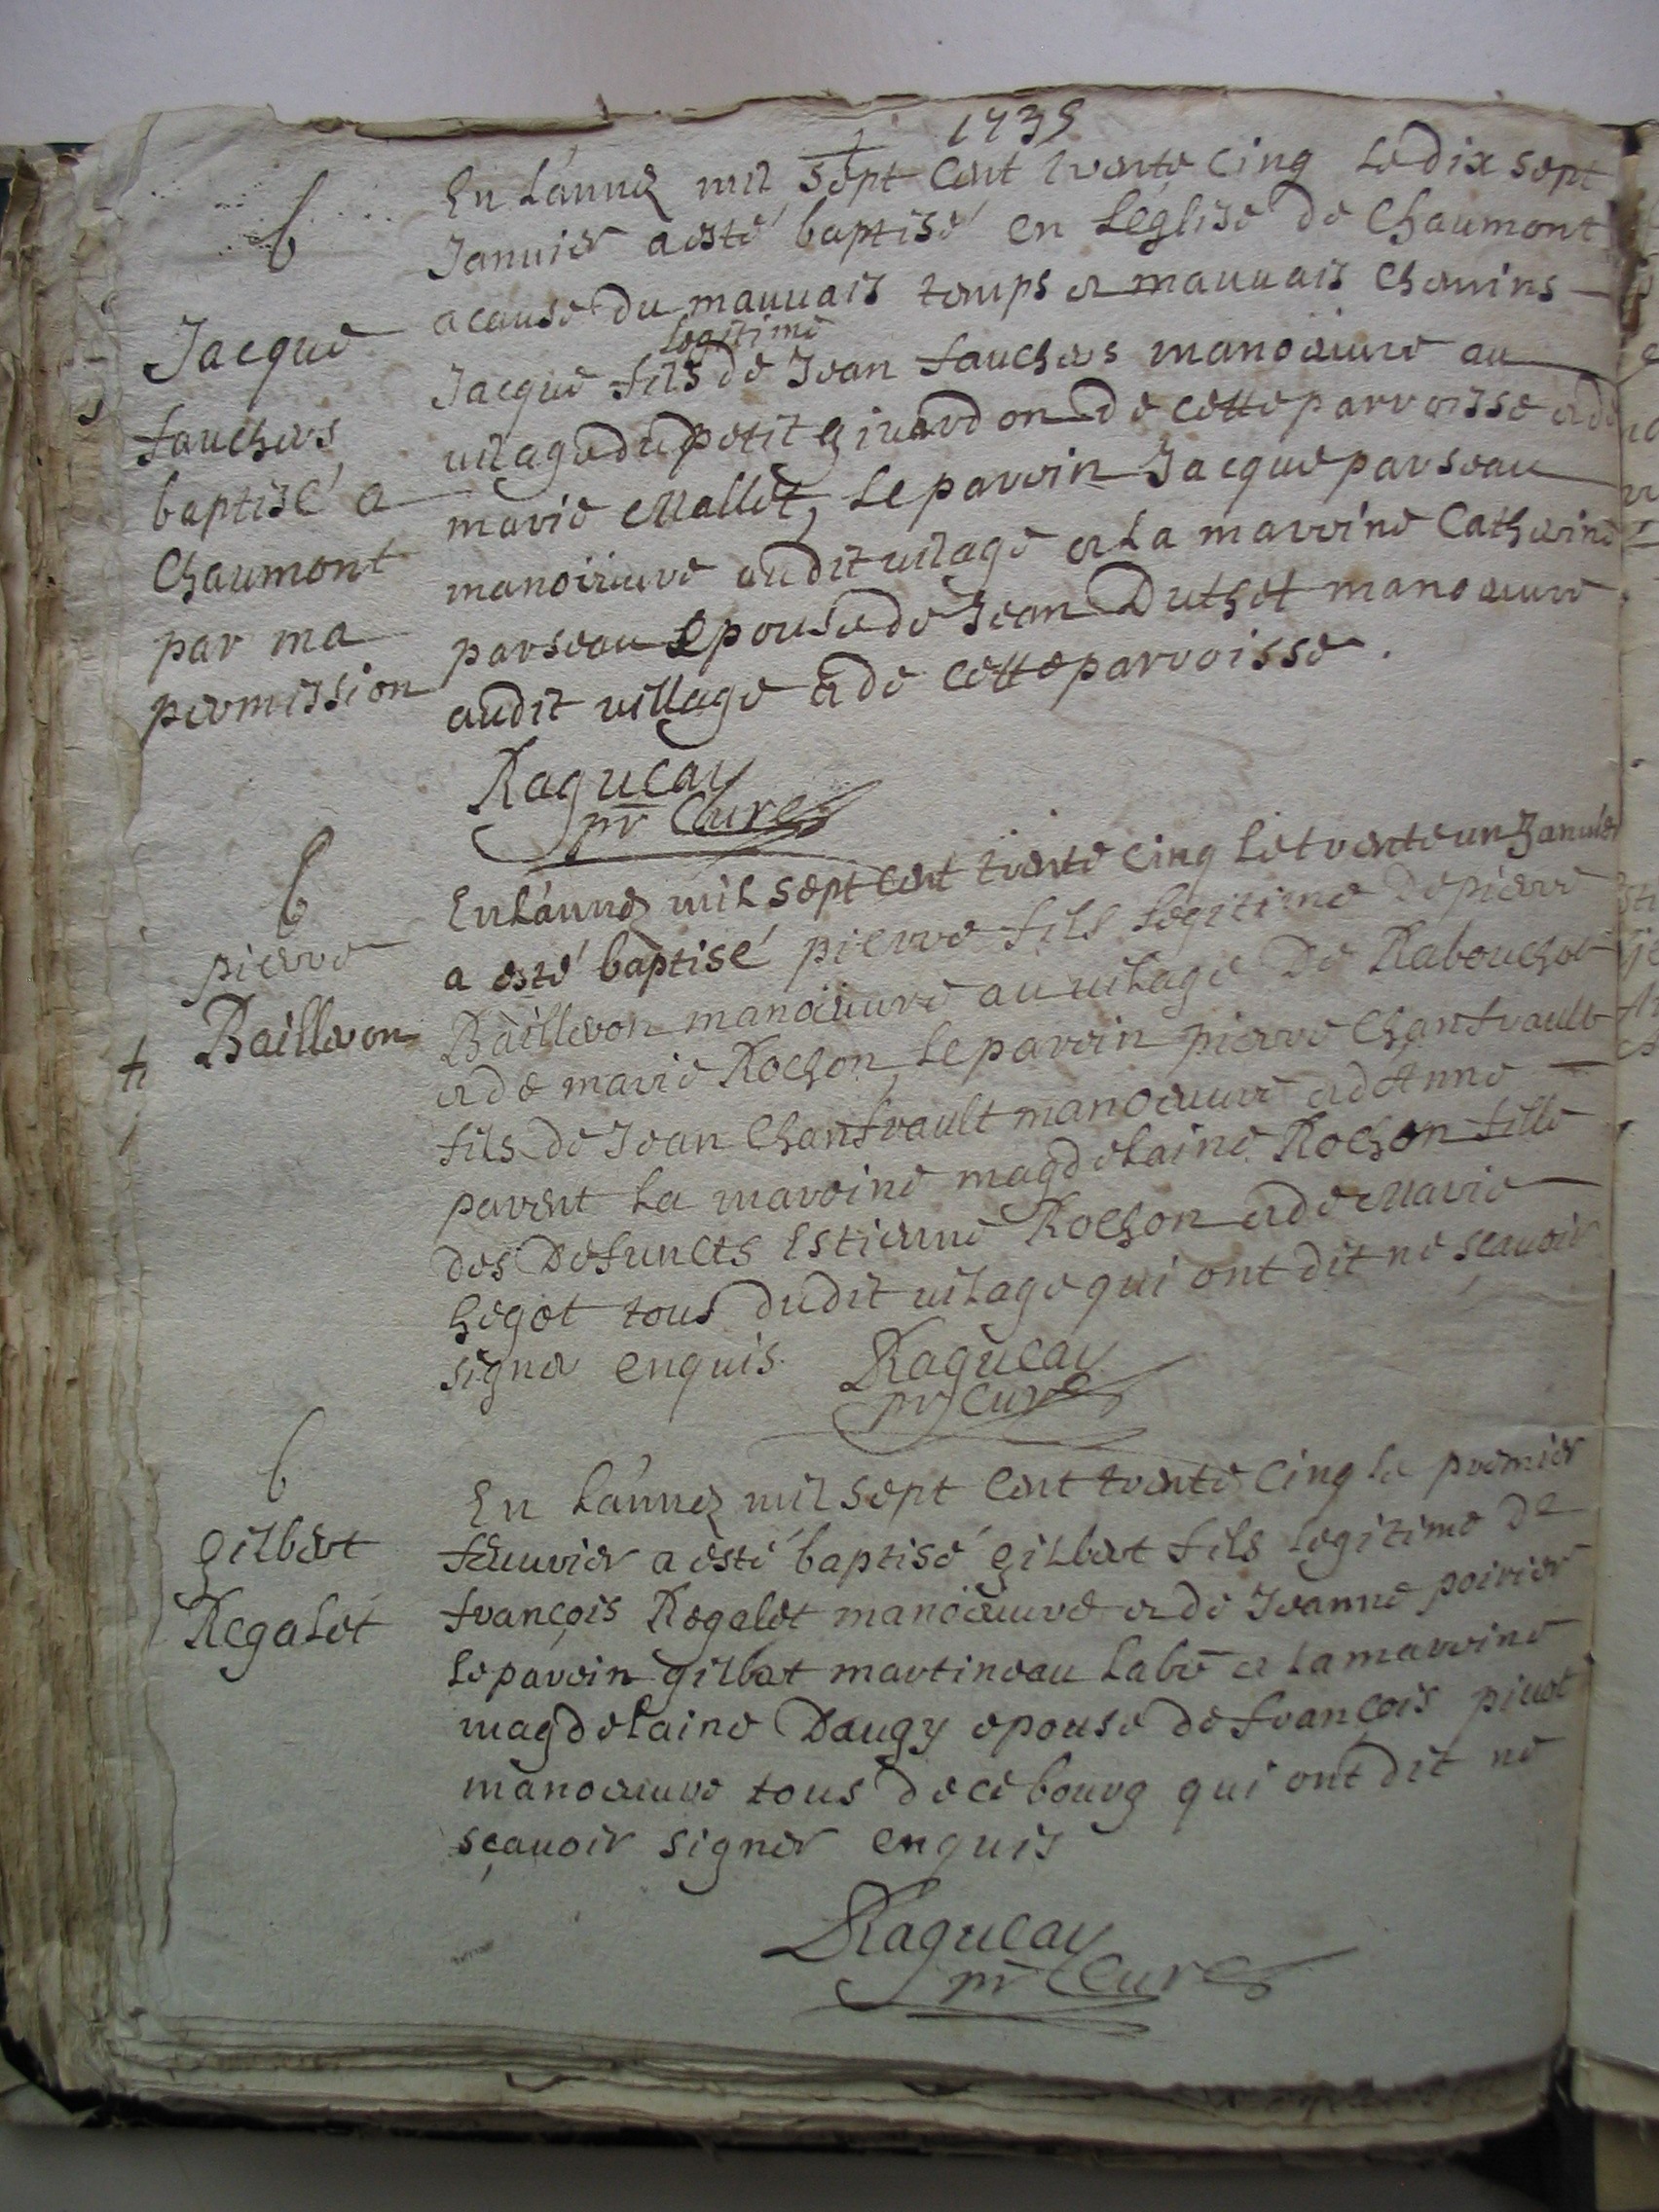 1735
b
Jacque
fauchers
baptisé a
Chaumont
par ma
permission
En L'année mil sept cent trente cinq Le dix sept
Januier a esté baptisé en Leglise de Chaumont
a cause du mauuais temps et mauuais Chemins
Jacque fils legitime de Jean fauchers manoeuure au
uilage du petit girardon de cette parroisse et de
marie Mallet, Le parein Jacque parseau
manoeuure audit uilage et La marreine Catherine
parseau Epouse de Jean Duthet manoeuure
audit village et de cette parroisse.
Ragueau
pr Curé
b
pierre
Bailleron
En L'année mil sept cent trente cinq Le trente un Januier
a esté baptisé pierre fils Legitime de pierre
Bailleron manoeuure au uilage De Rabouchot
et de marie Rochon, Le parein pierre Chanfrault
fils de Jean Chanfrault manoeuure et d'Anne
parent La mareine magdelaine Rochon fille
des Defuncts Estienne Rochon et de Marie
hegot tous dudit uilage qui ont dit ne sçauoir
signer enquis. Ragueau
pr Curé
b
gilbert
Regalet
En L'année mil sept Cent trente Cinq Le premier
feuurier a esté baptisé gilbert fils Legitime de
françois Regalet manoeuure et de Jeanne poirier
Le parein gilbert martineau Labr et La mareine
magdelaine Daugy epouse de françois piuot
manoeuure tous de ce bourg qui ont dit ne
sçauoir signer enquis
Ragueau
pr Curé